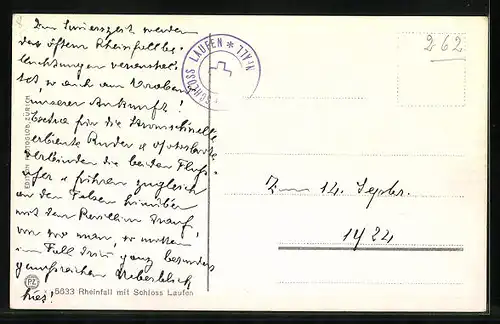 Zur Sommerszeit werden
des öftern Rheinfallbe-
leuchtungen veranstal-
tet, so auch am Vorabend
unserer Ankunft!
Extra für die Stromschnelle
Ruder & Motorboote
verbinden die beiden Fluss-
ufer & führen zugleich
an den Felsen hinüber
mit dem Pavillon drauf,
von wo man, so mitten
im Fall drin ganz besonders
Ueberblick
hies!
SCHLOSS LAUFEN * N.FALL
262
Zum 14. Septbr.
1924
PZ
5633 Rheinfall mit Schloss Laufen